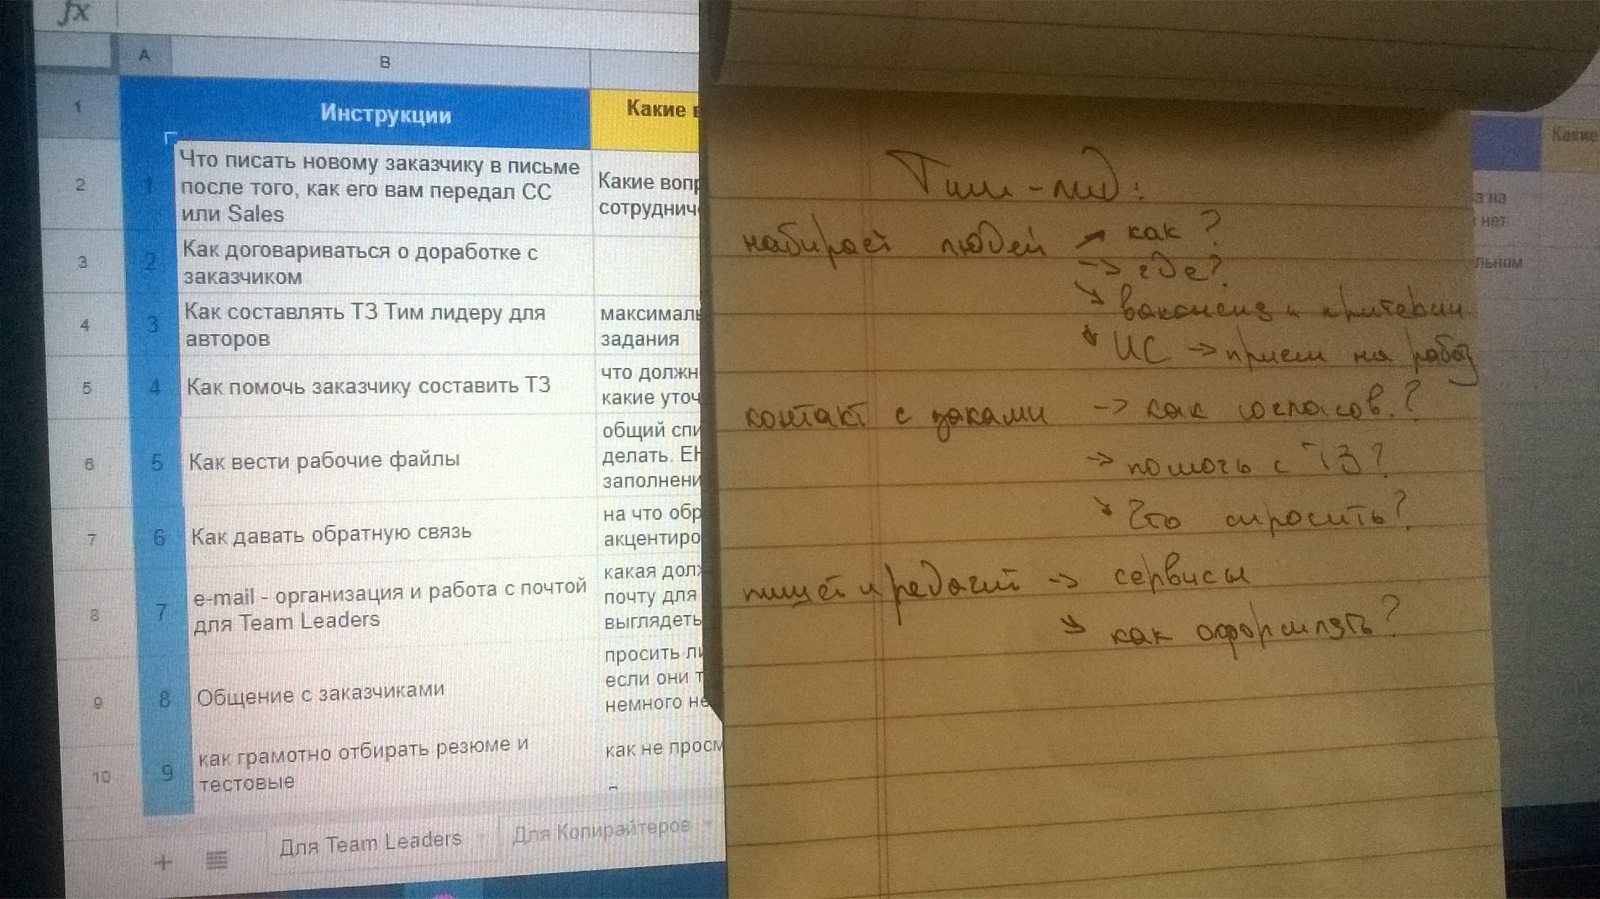 fx
A
B
1
Инструкции
Какие в
2
1
Что писать новому заказчику в письме
после того, как его вам передал СС
или Sales
Какие вопр
сотруднич
3
2
Как договариваться о доработке с
заказчиком
4
3
Как составлять ТЗ Тим лидеру для
авторов
максималь
задания
5
4
Как помочь заказчику составить ТЗ
что должн
какие уточ
6
5
Как вести рабочие файлы
общий спи
делать. ЕН
заполнени
7
6
Как давать обратную связь
на что обр
акцентиро
8
7
e-mail - организация и работа с почтой
для Team Leaders
какая долж
почту для
выглядеть
9
8
Общение с заказчиками
просить ли
если они т
немного не
10
9
как грамотно отбирать резюме и
тестовые
как не просм
+
Для Team Leaders
Для Копирайтеров
Тим-лид:
набирает людей → как?
→ где?
→ вакансия и критерии
→ ИС → прием на работу
контакт с заками → как согласов.?
→ помочь с ТЗ?
→ Что спросить?
пишет и редачит → сервисы
→ как оформлять?
Какие
а на
нет
льном